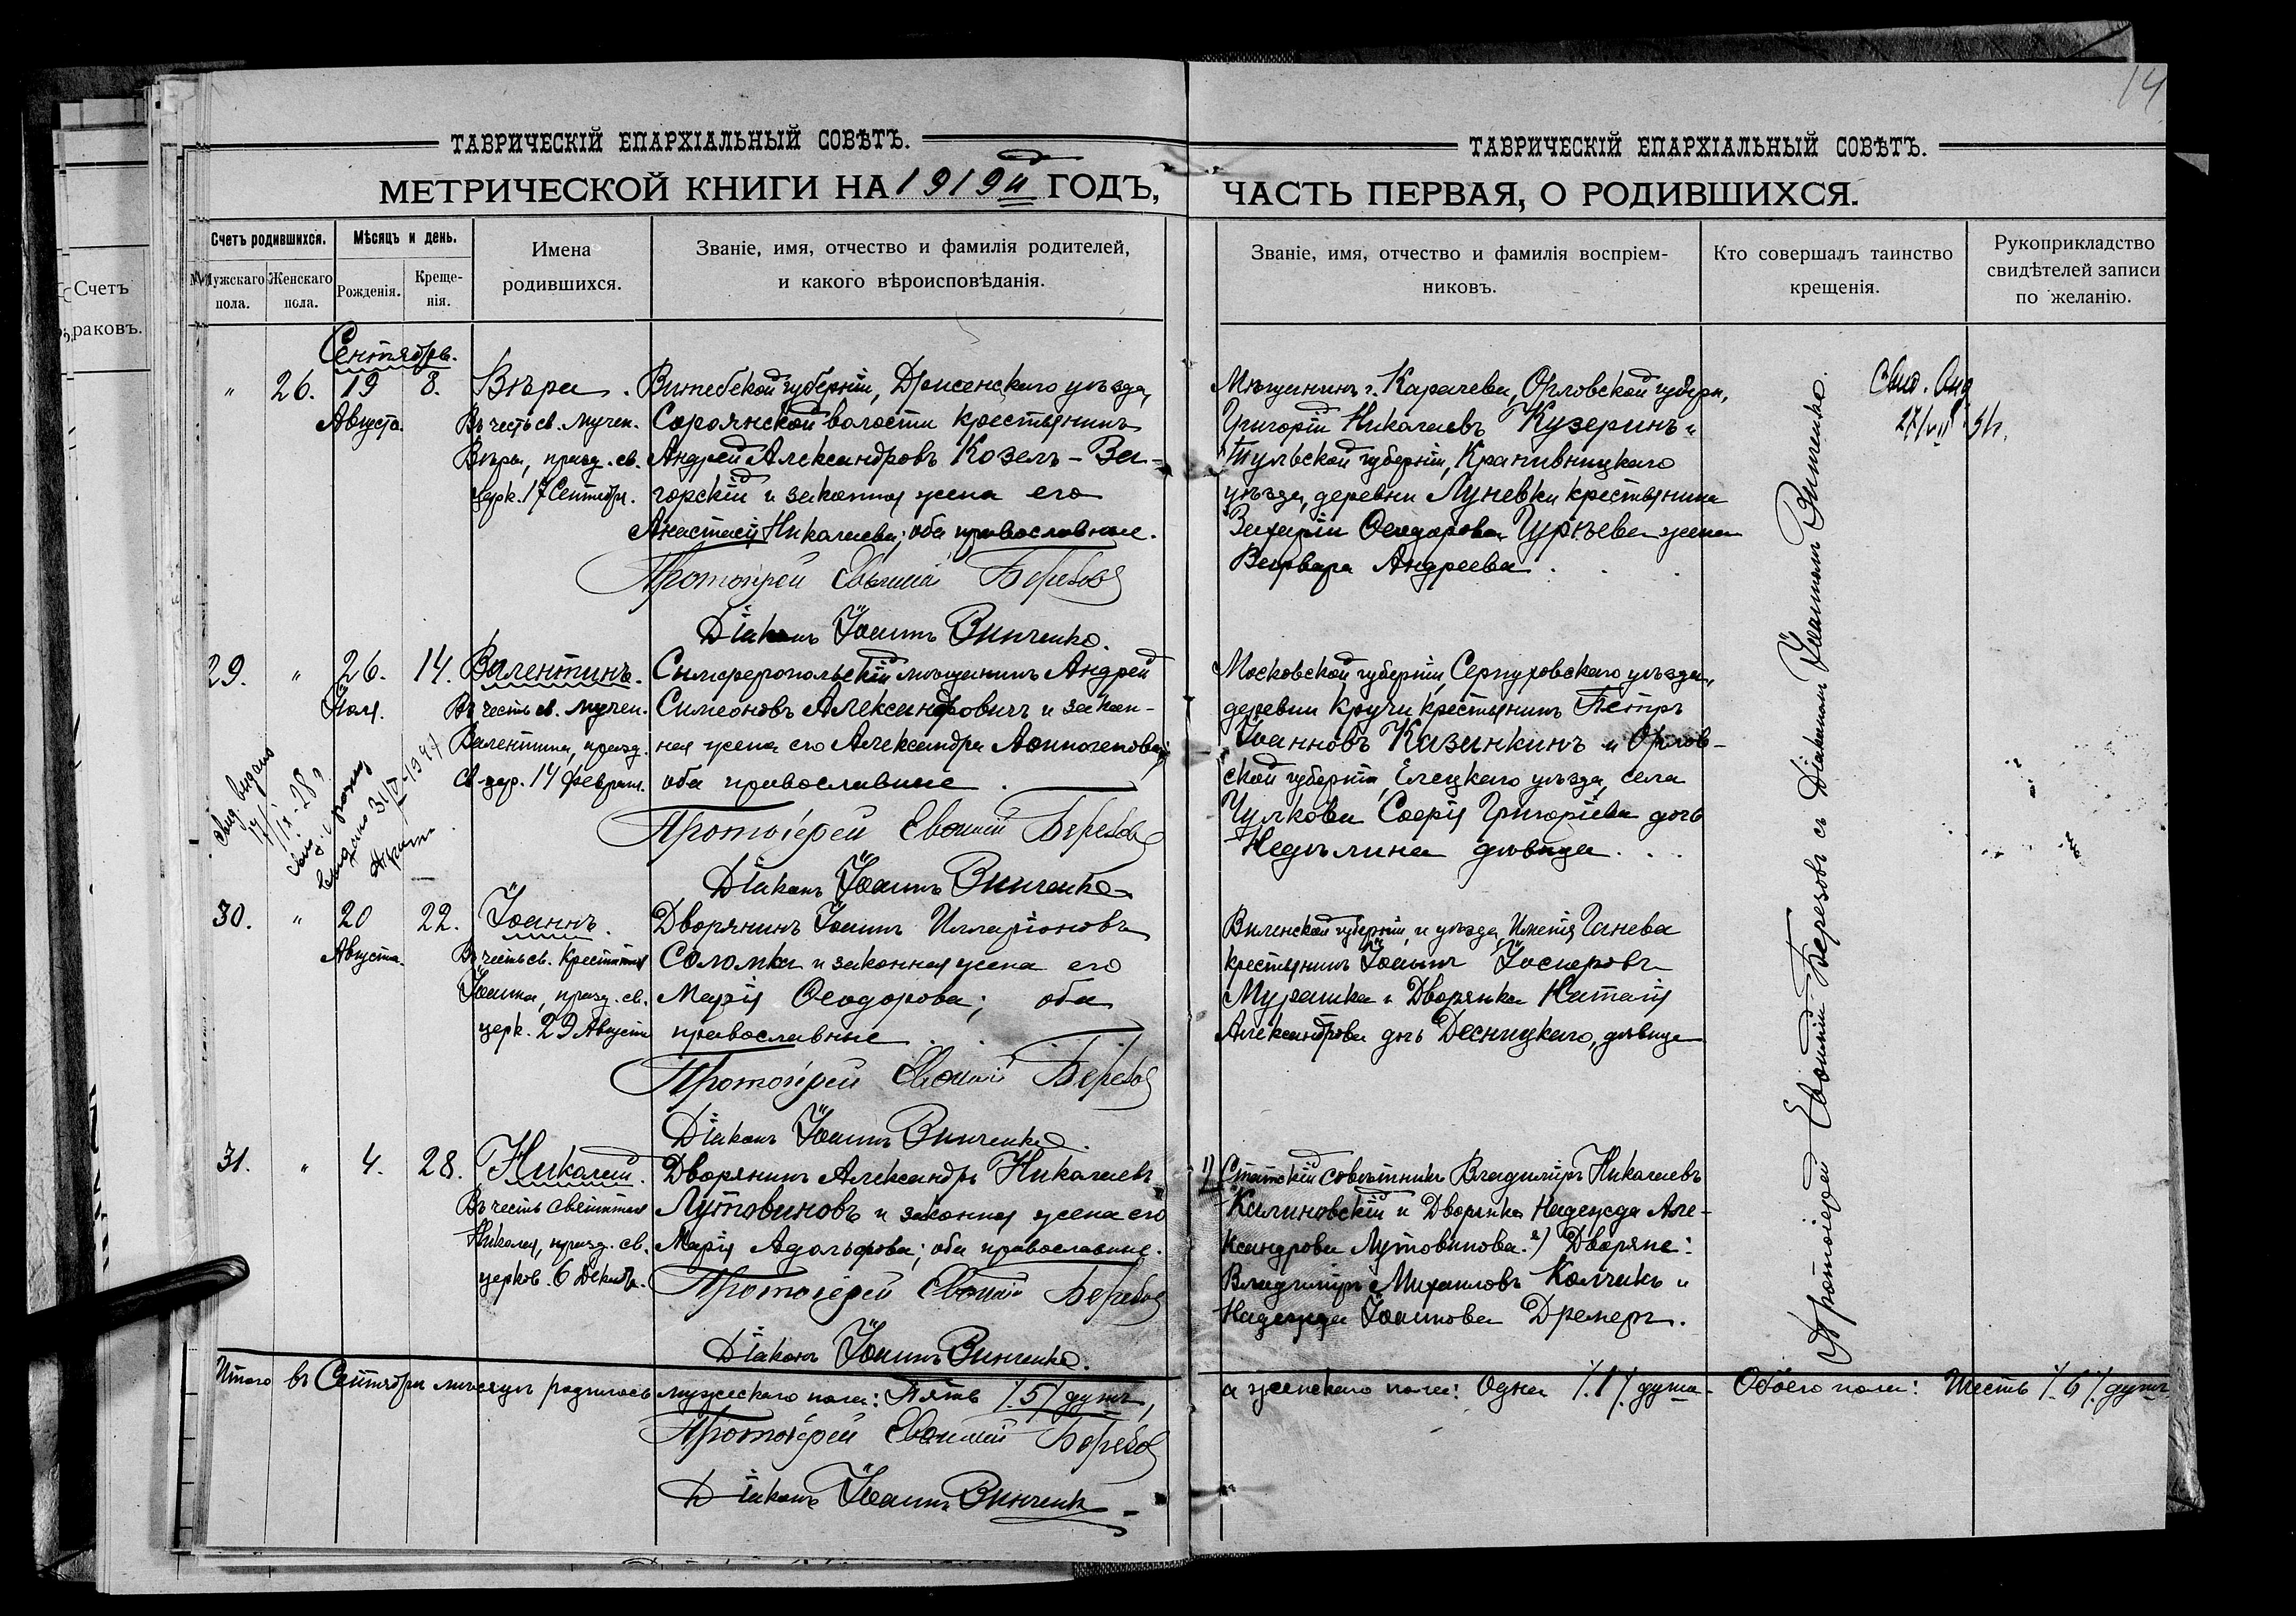 14
ТАВРИЧЕСКІЙ ЕПАРХІАЛЬНЫЙ СОВѢТЪ.
МЕТРИЧЕСКОЙ КНИГИ НА 1919й ГОДЪ,
Счетъ родившихся.
Мужскаго пола.
Женскаго пола.
Мѣсяцъ и день.
Рожденія.
Креще-
нія.
Имена
родившихся.
Званіе, имя, отчество и фамилія родителей,
и какого вѣроисповѣданія.
Счетъ
раковъ.
Сентябрь.
" 26. 19 8. Вѣра.
Августа.
Въ честь св. мучен.
Вѣры, празд. св.
церк. 17 Сентябр.
Витебской губерніи, Дрисенскаго уѣзда,
Сороянской волости крестьянинъ
Андрей Александровъ Козелъ-За-
горскій и законная жена его
Анастасія Николаева; оба православные.
Протоіерей Евѳимій Березовъ
Діаконъ Іоаннъ Винченко.
29. " 26. 14. Валентинъ.
Іюля.
Въ честь св. мучен.
Валентина, празд.
св. цер. 14 Феврал.
Симферопольскій мѣщанинъ Андрей
Симеоновъ Александровичъ и закон-
ная жена его Александра Аѳиногенова;
оба православные.
Протоіерей Евѳимій Березовъ
Діаконъ Іоаннъ Винченко
30. " 20 22. Іоаннъ.
Августа.
Въ честь св. Крестителя
Іоанна, празд. св.
церк. 29 Августа
Дворянинъ Іоаннъ Илларіоновъ
Соломка и законная жена его
Марія Ѳеодорова; оба
православные
Протоіерей Евѳимій Березовъ
Діаконъ Іоаннъ Винченко.
31. " 4. 28. Николай.
Въ честь святителя
Николая, празд. св.
церков. 6 Декабр.
Дворянинъ Александръ Николаевъ
Лутовиновъ и законная жена его
Марія Адольфова; оба православные.
Протоіерей Евѳимій Березовъ
Діаконъ Іоаннъ Винченко.
свид. выдано
17/IX-28 г.
выдано
Итого въ Сентябрѣ мѣсяцѣ родилось мужескаго пола: Пять /.5/ душъ,
Протоіерей Евѳимій Березовъ
Діаконъ Іоаннъ Винченко
ТАВРИЧЕСКІЙ ЕПАРХІАЛЬНЫЙ СОВѢТЪ.
ЧАСТЬ ПЕРВАЯ, О РОДИВШИХСЯ.
Званіе, имя, отчество и фамилія воспріем-
никовъ.
Кто совершалъ таинство
крещенія.
Рукоприкладство
свидѣтелей записи
по желанію.
Мѣщанинъ г. Карачева, Орловской губерн.,
Григорій Николаевъ Кузеринъ и
Тульской губерніи, Крапивницкаго
уѣзда, деревни Луневки крестьянина
Захарія Ѳеодорова Гурѣева жена
Варвара Андреева.
Московской губерніи, Серпуховскаго уѣзда,
деревни Кручи крестьянинъ Петръ
Іоанновъ Казанкинъ и Орлов-
ской губерніи, Елецкаго уѣзда, села
Чулкова Софія Григоріева дочь
Недѣлина дѣвица.
Виленской губерніи, и уѣзда, имѣнія Ганева
крестьянинъ Іоаннъ Іосифовъ
Мурашка и Дворянка Наталія
Александрова дочь Десницкаго, дѣвица
1) Статскій совѣтникъ Владиміръ Николаевъ
Калиновскій и Дворянка Надежда Але-
ксандрова Лутовинова. 2) Дворяне:
Владиміръ Михаиловъ Колчакъ и
Надежда Іоаннова Дремеръ.
Протоіерей Евѳимій Березовъ съ Діакономъ Іоанномъ Винченко.
а женскаго пола: Одна /.1/. душа. Обоего пола: Шесть /.6/. душъ